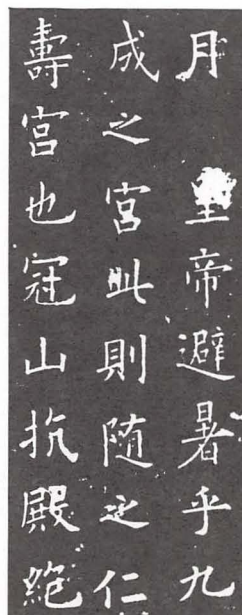 月 皇帝避暑乎九
成之宮此則随之仁
壽宮也冠山抗殿絶